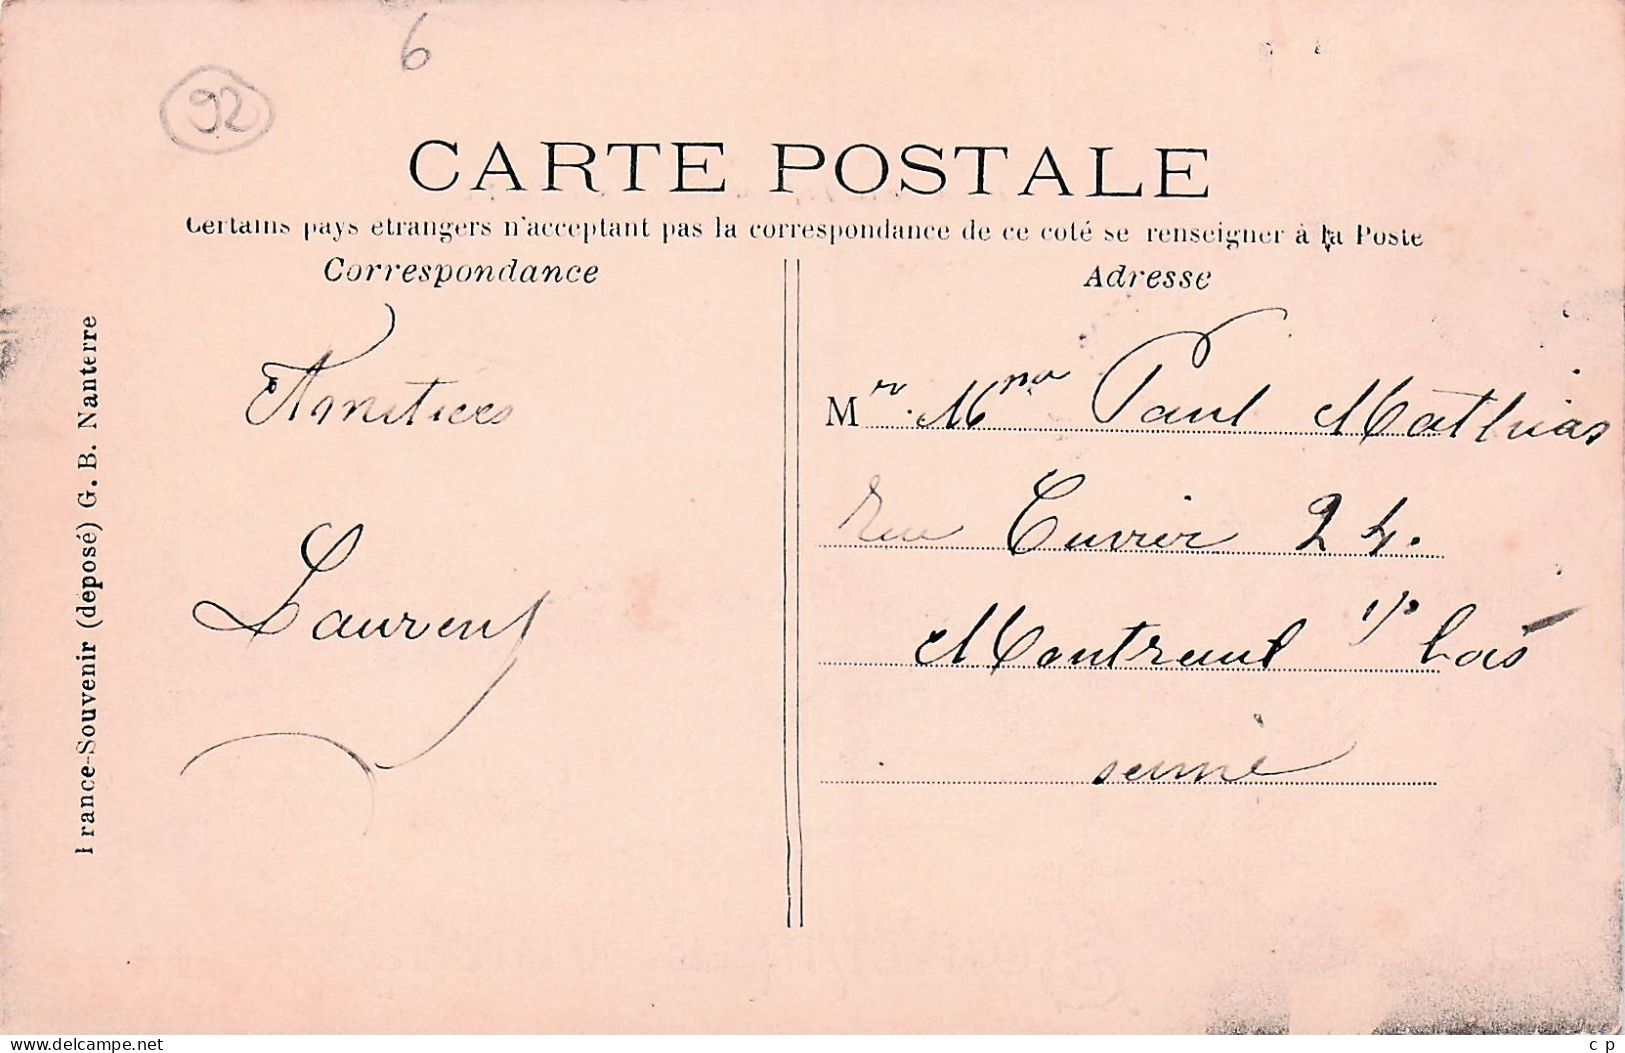 6
92
CARTE POSTALE
Certains pays étrangers n'acceptant pas la correspondance de ce coté se renseigner à la Poste
Correspondance
Adresse
Amitiées
Laurent
Mr. Mme Paul Mathias
Rue Cuvier 24.
Montreuil s/s bois
seine
France-Souvenir (déposé) G. B. Nanterre
www.delcampe.net
c p